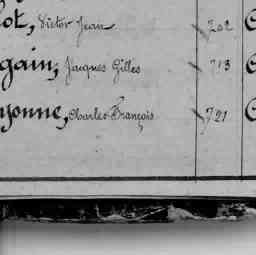 lot, Victor Jean 202
gain, Jacques Gilles 713
yonne, Charles François 721